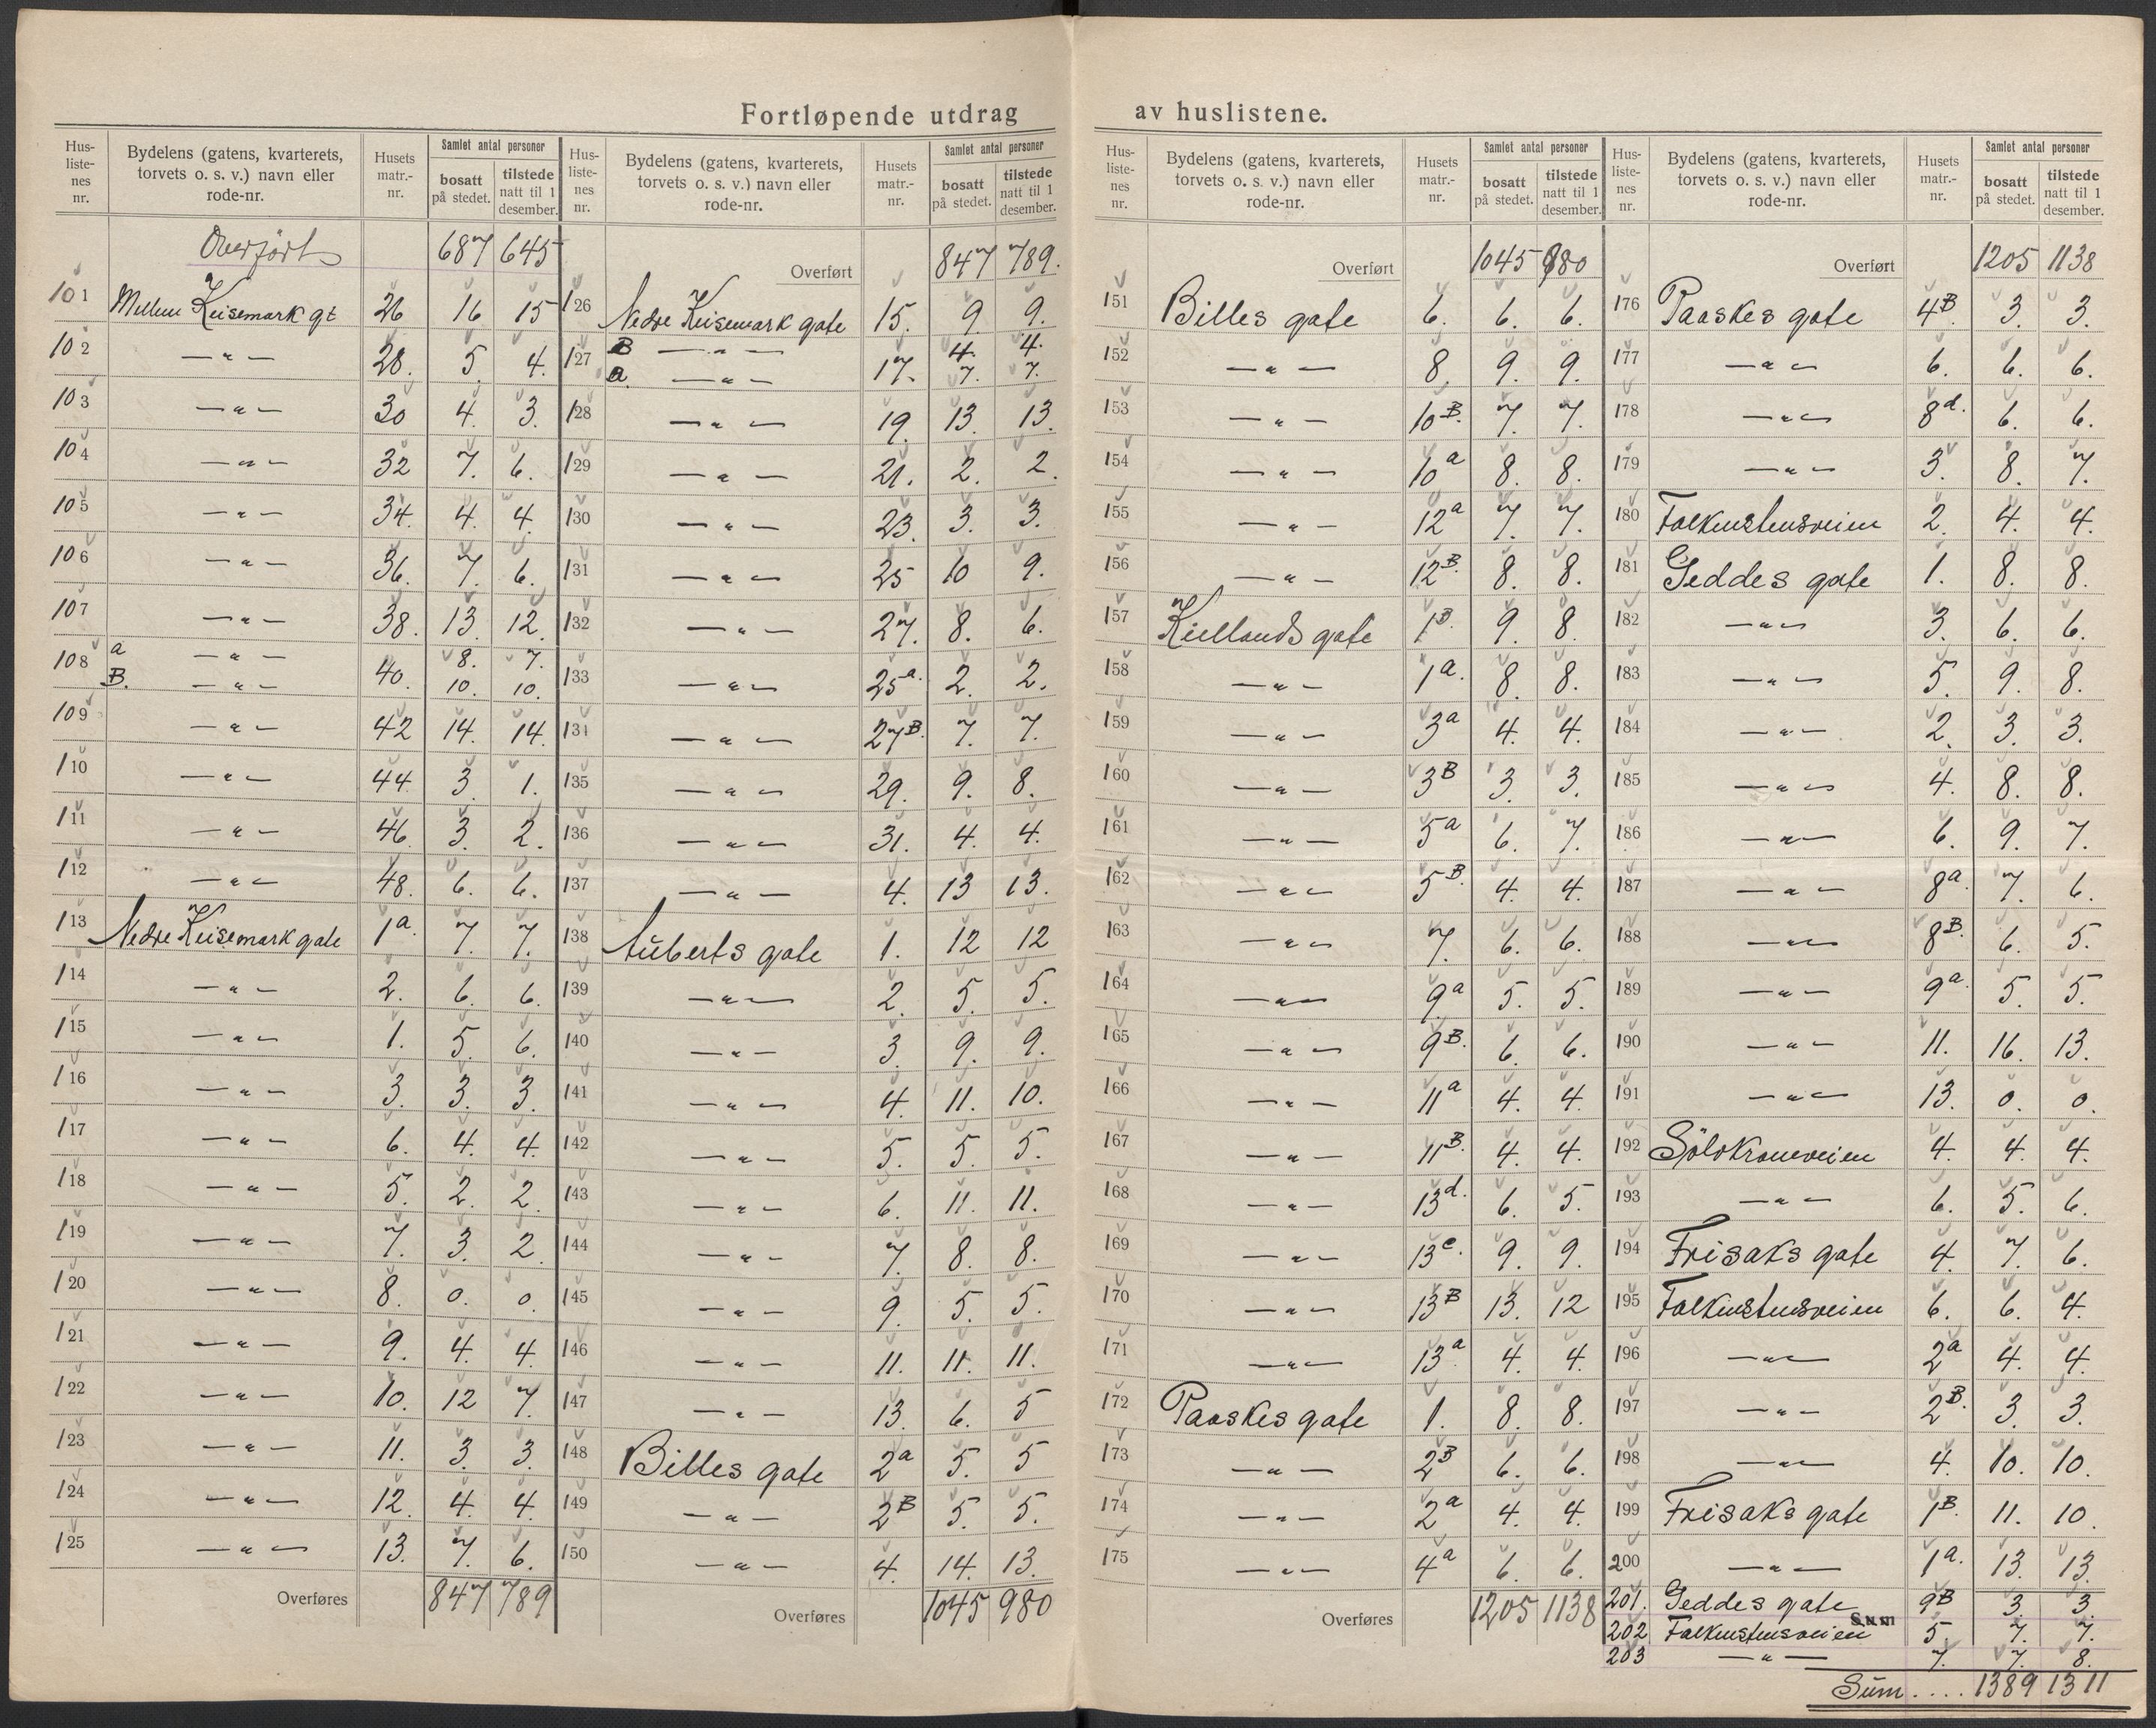 Fortløpende utdrag av huslistene.
Hus-liste-nes nr. | Bydelens (gatens, kvarterets, torvets o. s. v.) navn eller rode-nr. | Husets matr.-nr. | Samlet antal personer: bosatt på stedet. | tilstede natt til 1 desember.
Overført 687 645
101 Mellem Keisemark gt 26 16 15
102 —"— 28. 5. 4.
103 —"— 30 4. 3.
104 —"— 32 7. 6.
105 —"— 34. 4. 4.
106 —"— 36. 7. 6.
107 —"— 38. 13. 12.
108 a —"— 40. 8. 7.
B. —"— 10. 10.
109 —"— 42 14. 14.
110 —"— 44. 3. 1.
111 —"— 46. 3. 2.
112 —"— 48. 6. 6.
113 Nedre Keisemark gate 1a. 7. 7.
114 —"— 2. 6. 6.
115 —"— 1. 5. 6.
116 —"— 3. 3. 3.
117 —"— 6. 4. 4.
118 —"— 5. 2. 2.
119 —"— 7. 3. 2.
120 —"— 8. 0. 0.
121 —"— 9. 4. 4.
122 —"— 10. 12 7.
123 —"— 11. 3. 3.
124 —"— 12. 4. 4.
125 —"— 13. 7. 6.
Overføres 847 789
Hus-liste-nes nr. | Bydelens (gatens, kvarterets, torvets o. s. v.) navn eller rode-nr. | Husets matr.-nr. | Samlet antal personer: bosatt på stedet. | tilstede natt til 1 desember.
Overført 847 789.
126 Nedre Keisemark gate 15. 9 9.
127 B —"— 17. 4. 4.
a. —"— 7. 7.
128 —"— 19. 13. 13.
129 —"— 21. 2. 2.
130 —"— 23. 3. 3.
131 —"— 25 10 9.
132 —"— 27. 8. 6.
133 —"— 25a. 2. 2.
134 —"— 27B. 7. 7.
135 —"— 29. 9. 8.
136 —"— 31. 4. 4.
137 —"— 4. 13 13.
138 Auberts gate 1. 12 12
139 —"— 2. 5. 5.
140 —"— 3. 9. 9.
141 —"— 4. 11. 10.
142 —"— 5. 5. 5.
143 —"— 6. 11. 11.
144 —"— 7. 8. 8.
145 —"— 9. 5. 5.
146 —"— 11. 11. 11.
147 —"— 13. 6. 5
148 Billes gate 2a 5. 5
149 —"— 2B 5. 5.
150 —"— 4. 14. 13.
Overføres 1045 980
Hus-liste-nes nr. | Bydelens (gatens, kvarterets, torvets o. s. v.) navn eller rode-nr. | Husets matr.-nr. | Samlet antal personer: bosatt på stedet. | tilstede natt til 1 desember.
Overført 1045 980
151 Billes gate 6. 6. 6.
152 —"— 8. 9. 9.
153 —"— 10B. 7. 7.
154 —"— 10a 8. 8.
155 —"— 12a 7. 7.
156 —"— 12B. 8. 8.
157 Kiellands gate 1B. 9. 8.
158 —"— 1a. 8. 8.
159 —"— 3a 4. 4.
160 —"— 3B 3. 3.
161 —"— 5a 6. 7.
162 —"— 5B. 4. 4.
163 —"— 7. 6. 6.
164 —"— 9a 5. 5.
165 —"— 9B. 6. 6.
166 —"— 11a 4. 4.
167 —"— 11B. 4. 4.
168 —"— 13d. 6. 5.
169 —"— 13c. 9. 9.
170 —"— 13B 13. 12
171 —"— 13a 4. 4.
172 Paaskes gate 1. 8. 8.
173 —"— 2B 6. 6.
174 —"— 2a 4. 4.
175 —"— 4a 6. 6.
Overføres 1205 1138
Hus-liste-nes nr. | Bydelens (gatens, kvarterets, torvets o. s. v.) navn eller rode-nr. | Husets matr.-nr. | Samlet antal personer: bosatt på stedet. | tilstede natt til 1 desember.
Overført 1205 1138
176 Paaskes gate 4B. 3. 3.
177 —"— 6. 6. 6.
178 —"— 8d. 6. 6.
179 —"— 3. 8. 7.
180 Falkenstensveien 2. 4. 4.
181 Geddes gate 1. 8. 8.
182 —"— 3. 6. 6.
183 —"— 5. 9. 8.
184 —"— 2. 3. 3.
185 —"— 4. 8. 8.
186 —"— 6. 9. 7.
187 —"— 8a. 7. 6.
188 —"— 8B. 6. 5.
189 —"— 9a. 5. 5.
190 —"— 11. 16. 13.
191 —"— 13. 0. 0.
192 Sølvkroneveien 4. 4. 4.
193 —"— 6. 5. 6.
194 Frisaks gate 4. 7. 6.
195 Falkenstensveien 6. 6. 4.
196 —"— 2a 4. 4.
197 —"— 2B. 3. 3.
198 —"— 4. 10. 10.
199 Frisaks gate 1B. 11. 10.
200 —"— 1a. 13. 13.
201. Geddes gate 9B 3. 3.
Sum
202 Falkenstensveien 5 7. 7.
203 —"— 7. 7. 8.
Sum.... 1389 1311